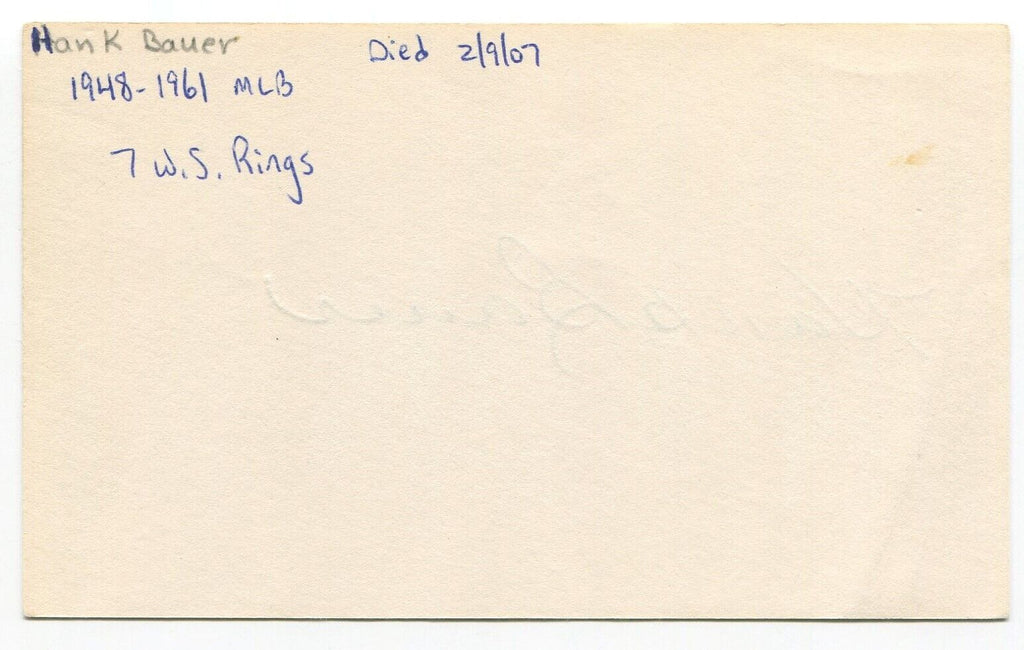 Hank Bauer Died 2/9/07
1948-1961 MLB
7 W.S. Rings